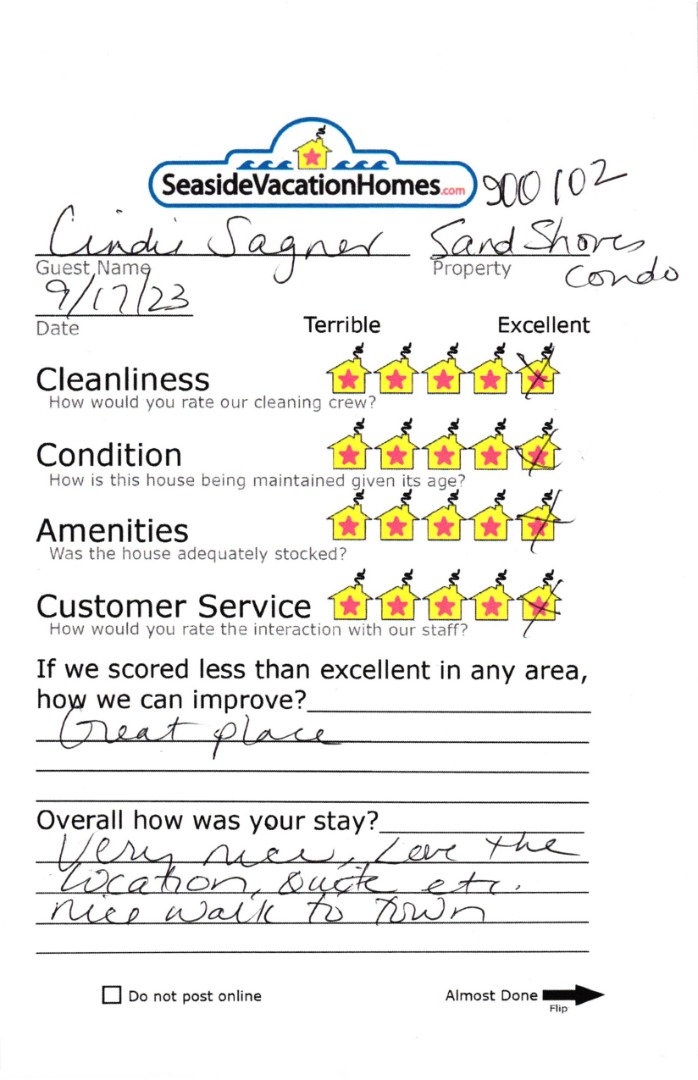 SeasideVacationHomes.com
900102
Cindie Sagner Sand Shores
Guest Name Property Condo
9/17/23
Date Terrible Excellent
Cleanliness
How would you rate our cleaning crew?
Condition
How is this house being maintained given its age?
Amenities
Was the house adequately stocked?
Customer Service
How would you rate the interaction with our staff?
If we scored less than excellent in any area,
how we can improve?
Great place
Overall how was your stay?
Very nice, Love the
location, etc.
nice walk to town
Do not post online Almost Done
Flip